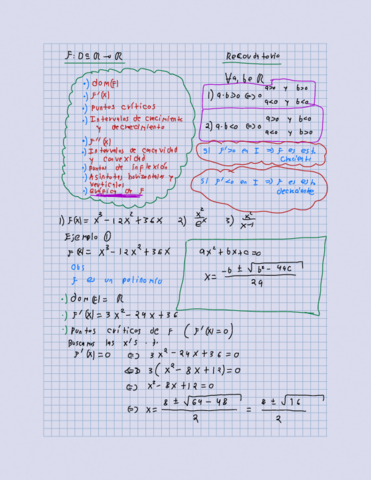 F: D⊆ ℝ → ℝ
•) dom(F)
•) F'(x)
•) Puntos críticos
•) Intervalos de crecimiento
y decrecimiento
•) F''(x)
•) Intervalos de concavidad
y convexidad
•) Puntos de inflexión
•) Asíntotas horizontales y
verticales
•) Gráfica de F
Recordatorio
∀ a, b ∈ ℝ
1) a·b>0 ⇔ a>0 y b>0
ó
a<0 y b<0
2) a·b<0 ⇔ a>0 y b<0
ó
a<0 y b>0
Si F'>0 en I ⇒ F es está
creciente
Si F'<0 en I ⇒ F es está
decreciente
1) F(x) = x³ - 12x² + 36x 2) x²/eˣ 3) x²/x-1
Ejemplo ①
F(x) = x³ - 12x² + 36x
Obs
F es un polinomio
ax² + bx + c = 0
x = -b ± √b² - 4ac / 2a
•) dom(F) = ℝ
•) F'(x) = 3x² - 24x + 36
•) Puntos críticos de F (F'(x)=0)
Buscamos las x's t.
F'(x) = 0 ⇔ 3x² - 24x + 36 = 0
⇔ 3(x² - 8x + 12) = 0
⇔ x² - 8x + 12 = 0
⇔ x = 8 ± √64 - 48 / 2 = 8 ± √16 / 2